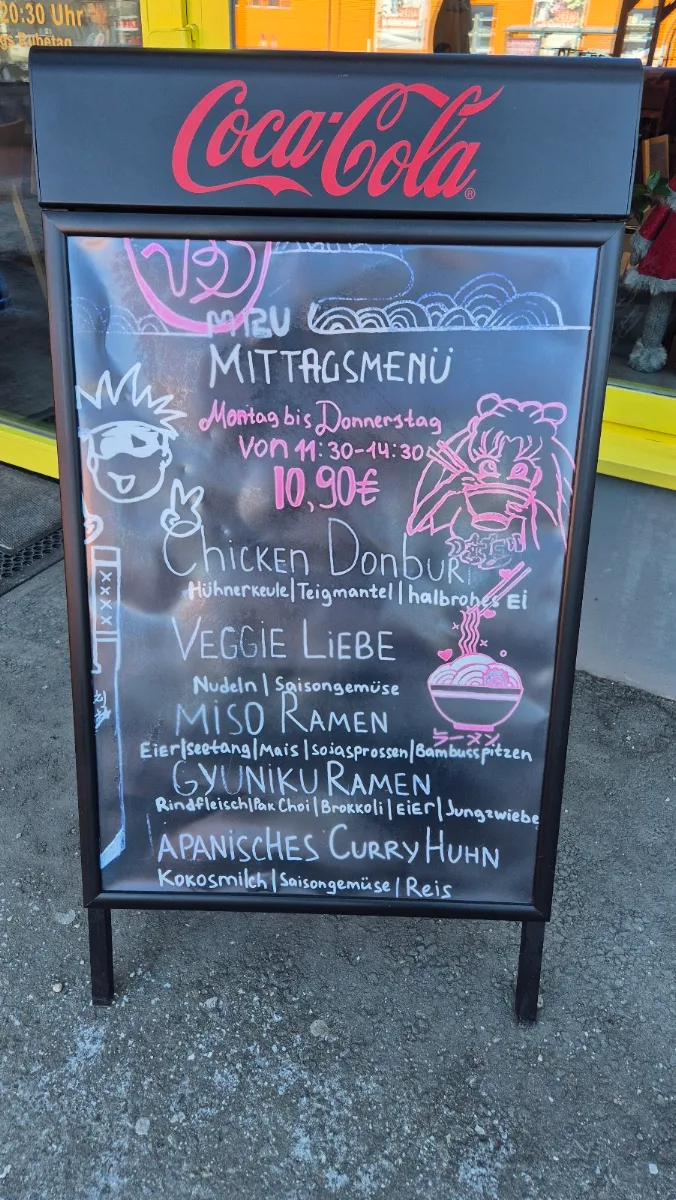 20:30 Uhr
Coca-Cola®
MIZU
MITTAGSMENÜ
Montag bis Donnerstag
von 11:30-14:30
10,90€
Chicken Donburi
Hühnerkeule|Teigmantel|halbrohes Ei
VEGGIE LIEBE
Nudeln | Saisongemüse
MISO RAMEN
Eier|seetang|Mais|Sojasprossen|Bambusspitzen
GYUNIKU RAMEN
Rindfleisch|Pak Choi|Brokkoli|EiEr|Jungzwiebe
APANISCHES CURRY HUHN
Kokosmilch|Saisongemüse|Reis
ラーメン